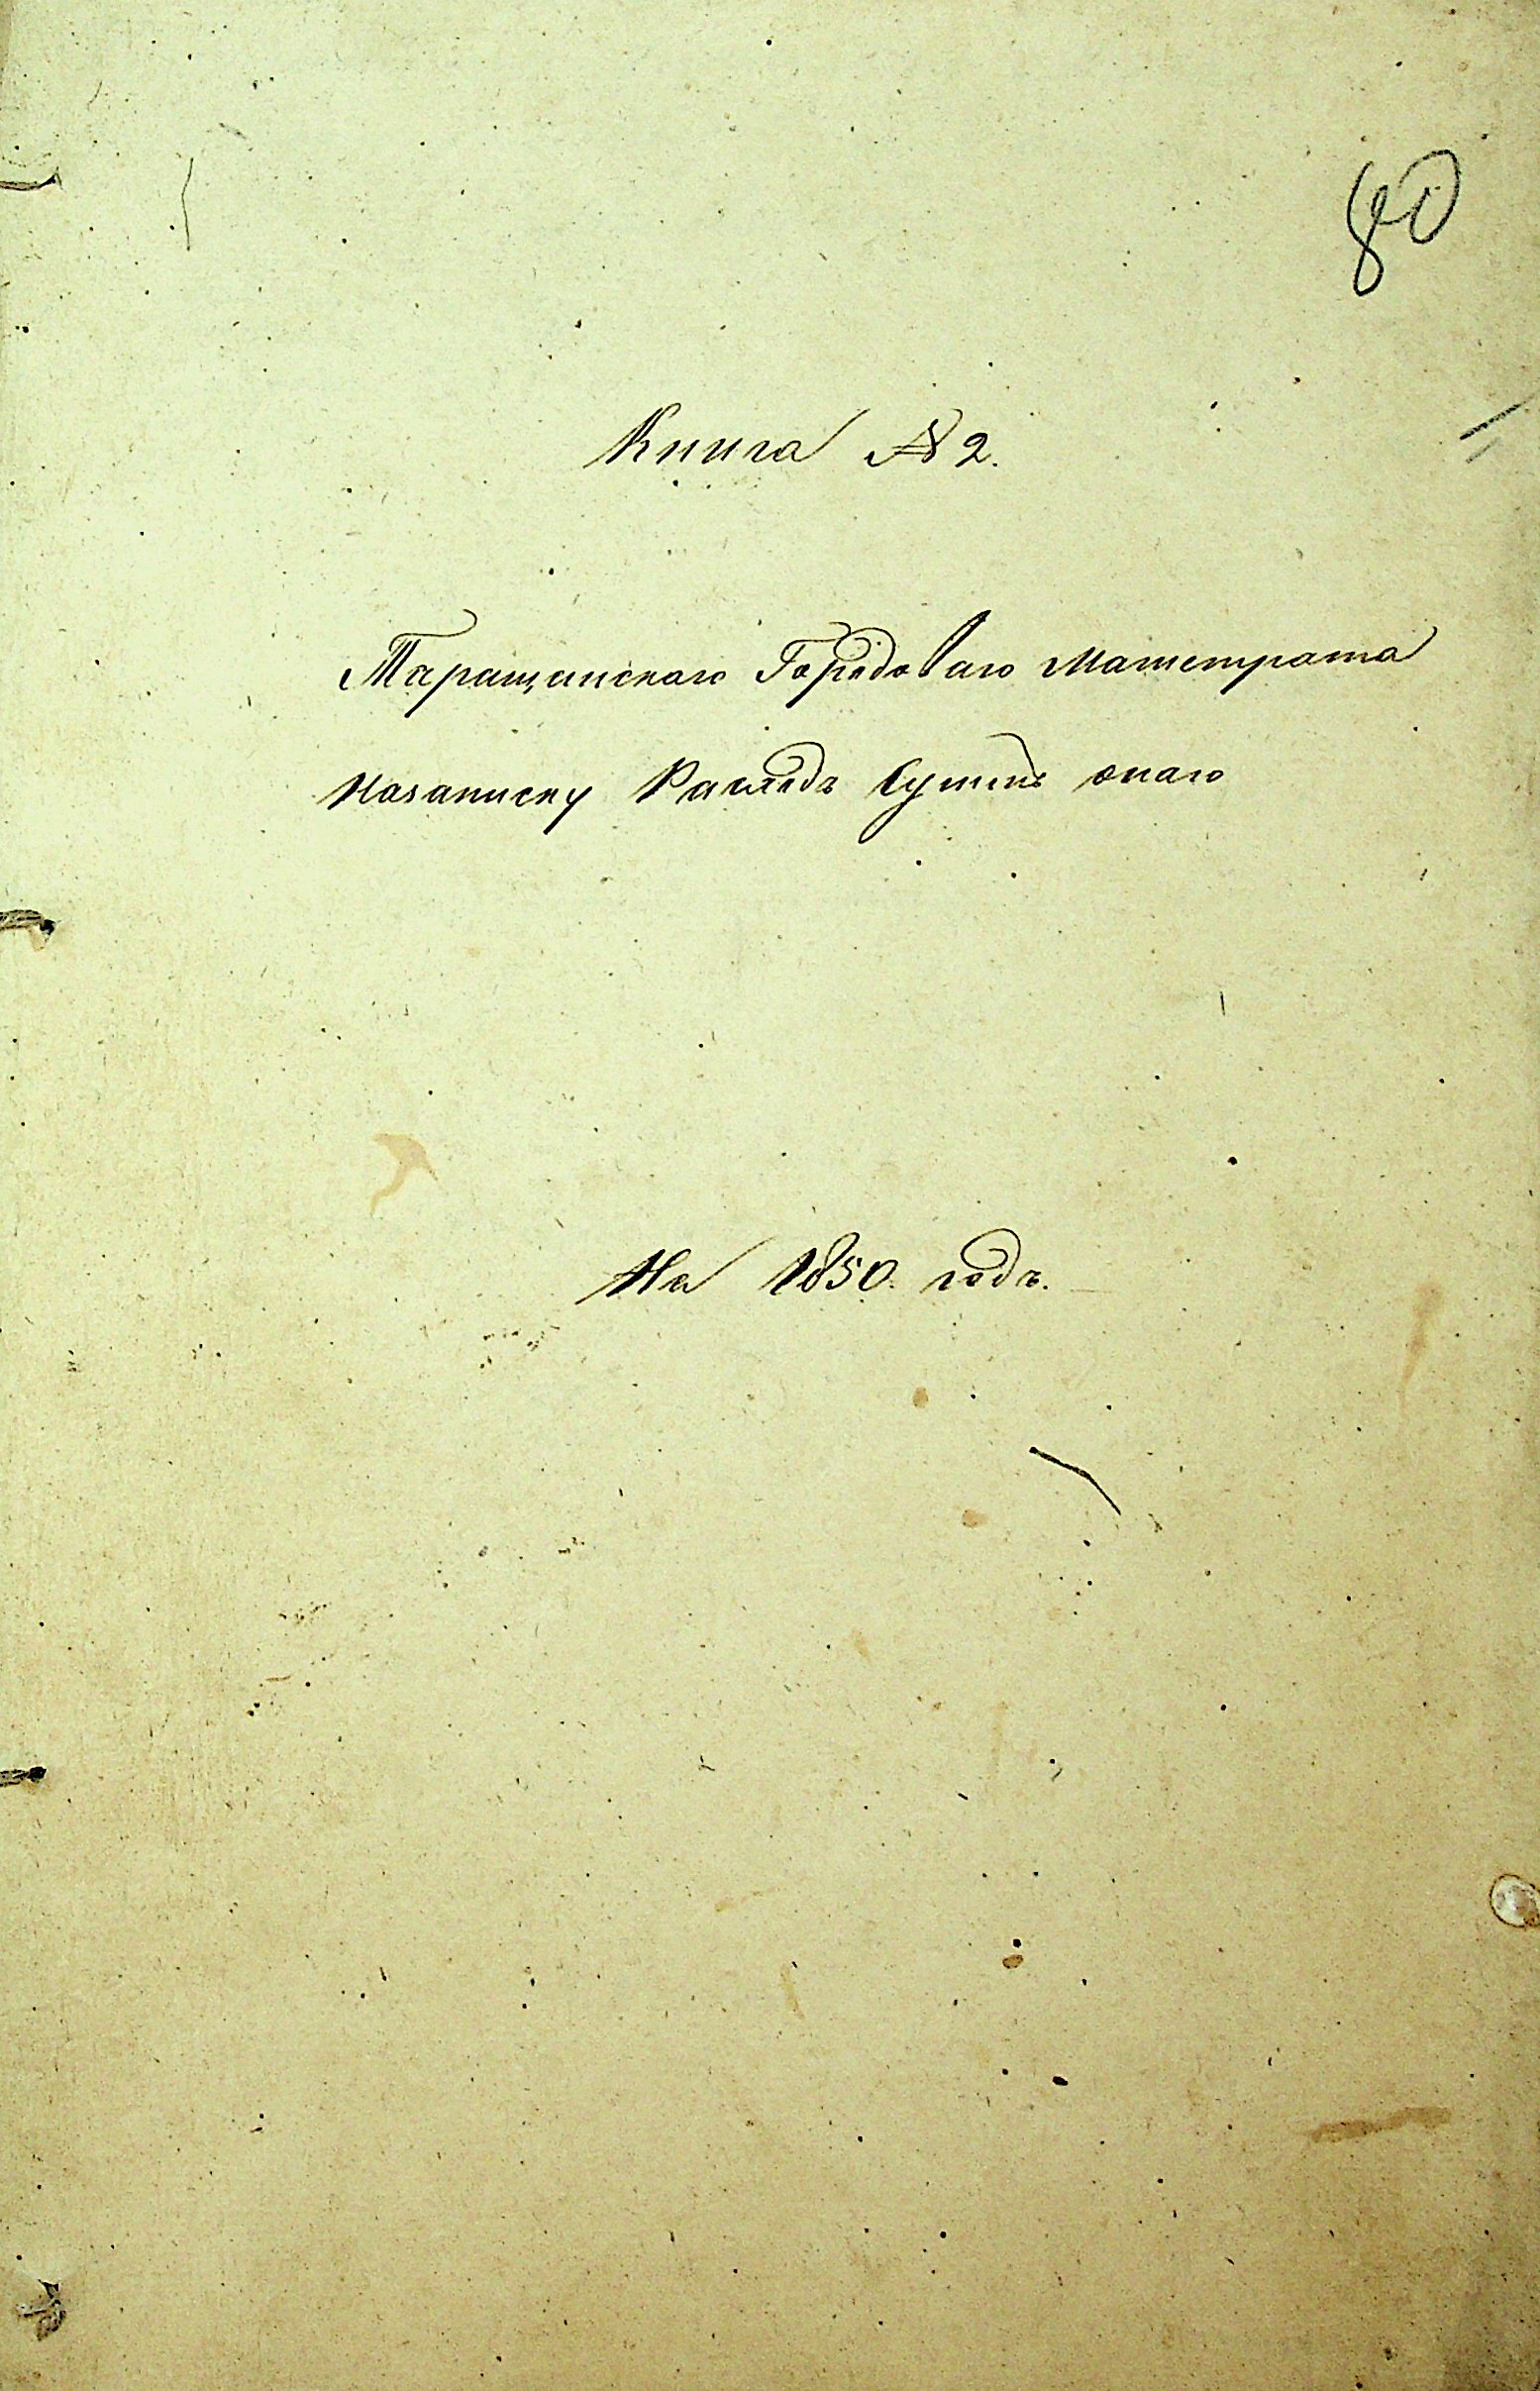 80
Книга № 2.
Таращанскаго Городоваго Магистрата
Назаписку Расходъ Суммъ онаго
На 1850. годъ.